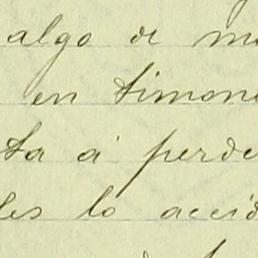 algo de m
en timon
ta á perde
les lo accid